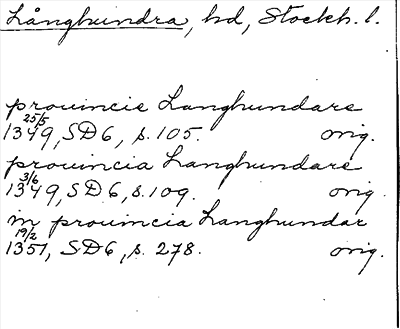 Långhundra, hd, Stockh. l.
prouincie Langhundare
25/5 1349, SD6, s. 105. orig.
prouincia Langhundare
3/6 1349, SD6, s. 109. orig
in prouincia Langhundar
19/2 1351, SD6, s. 278. orig.